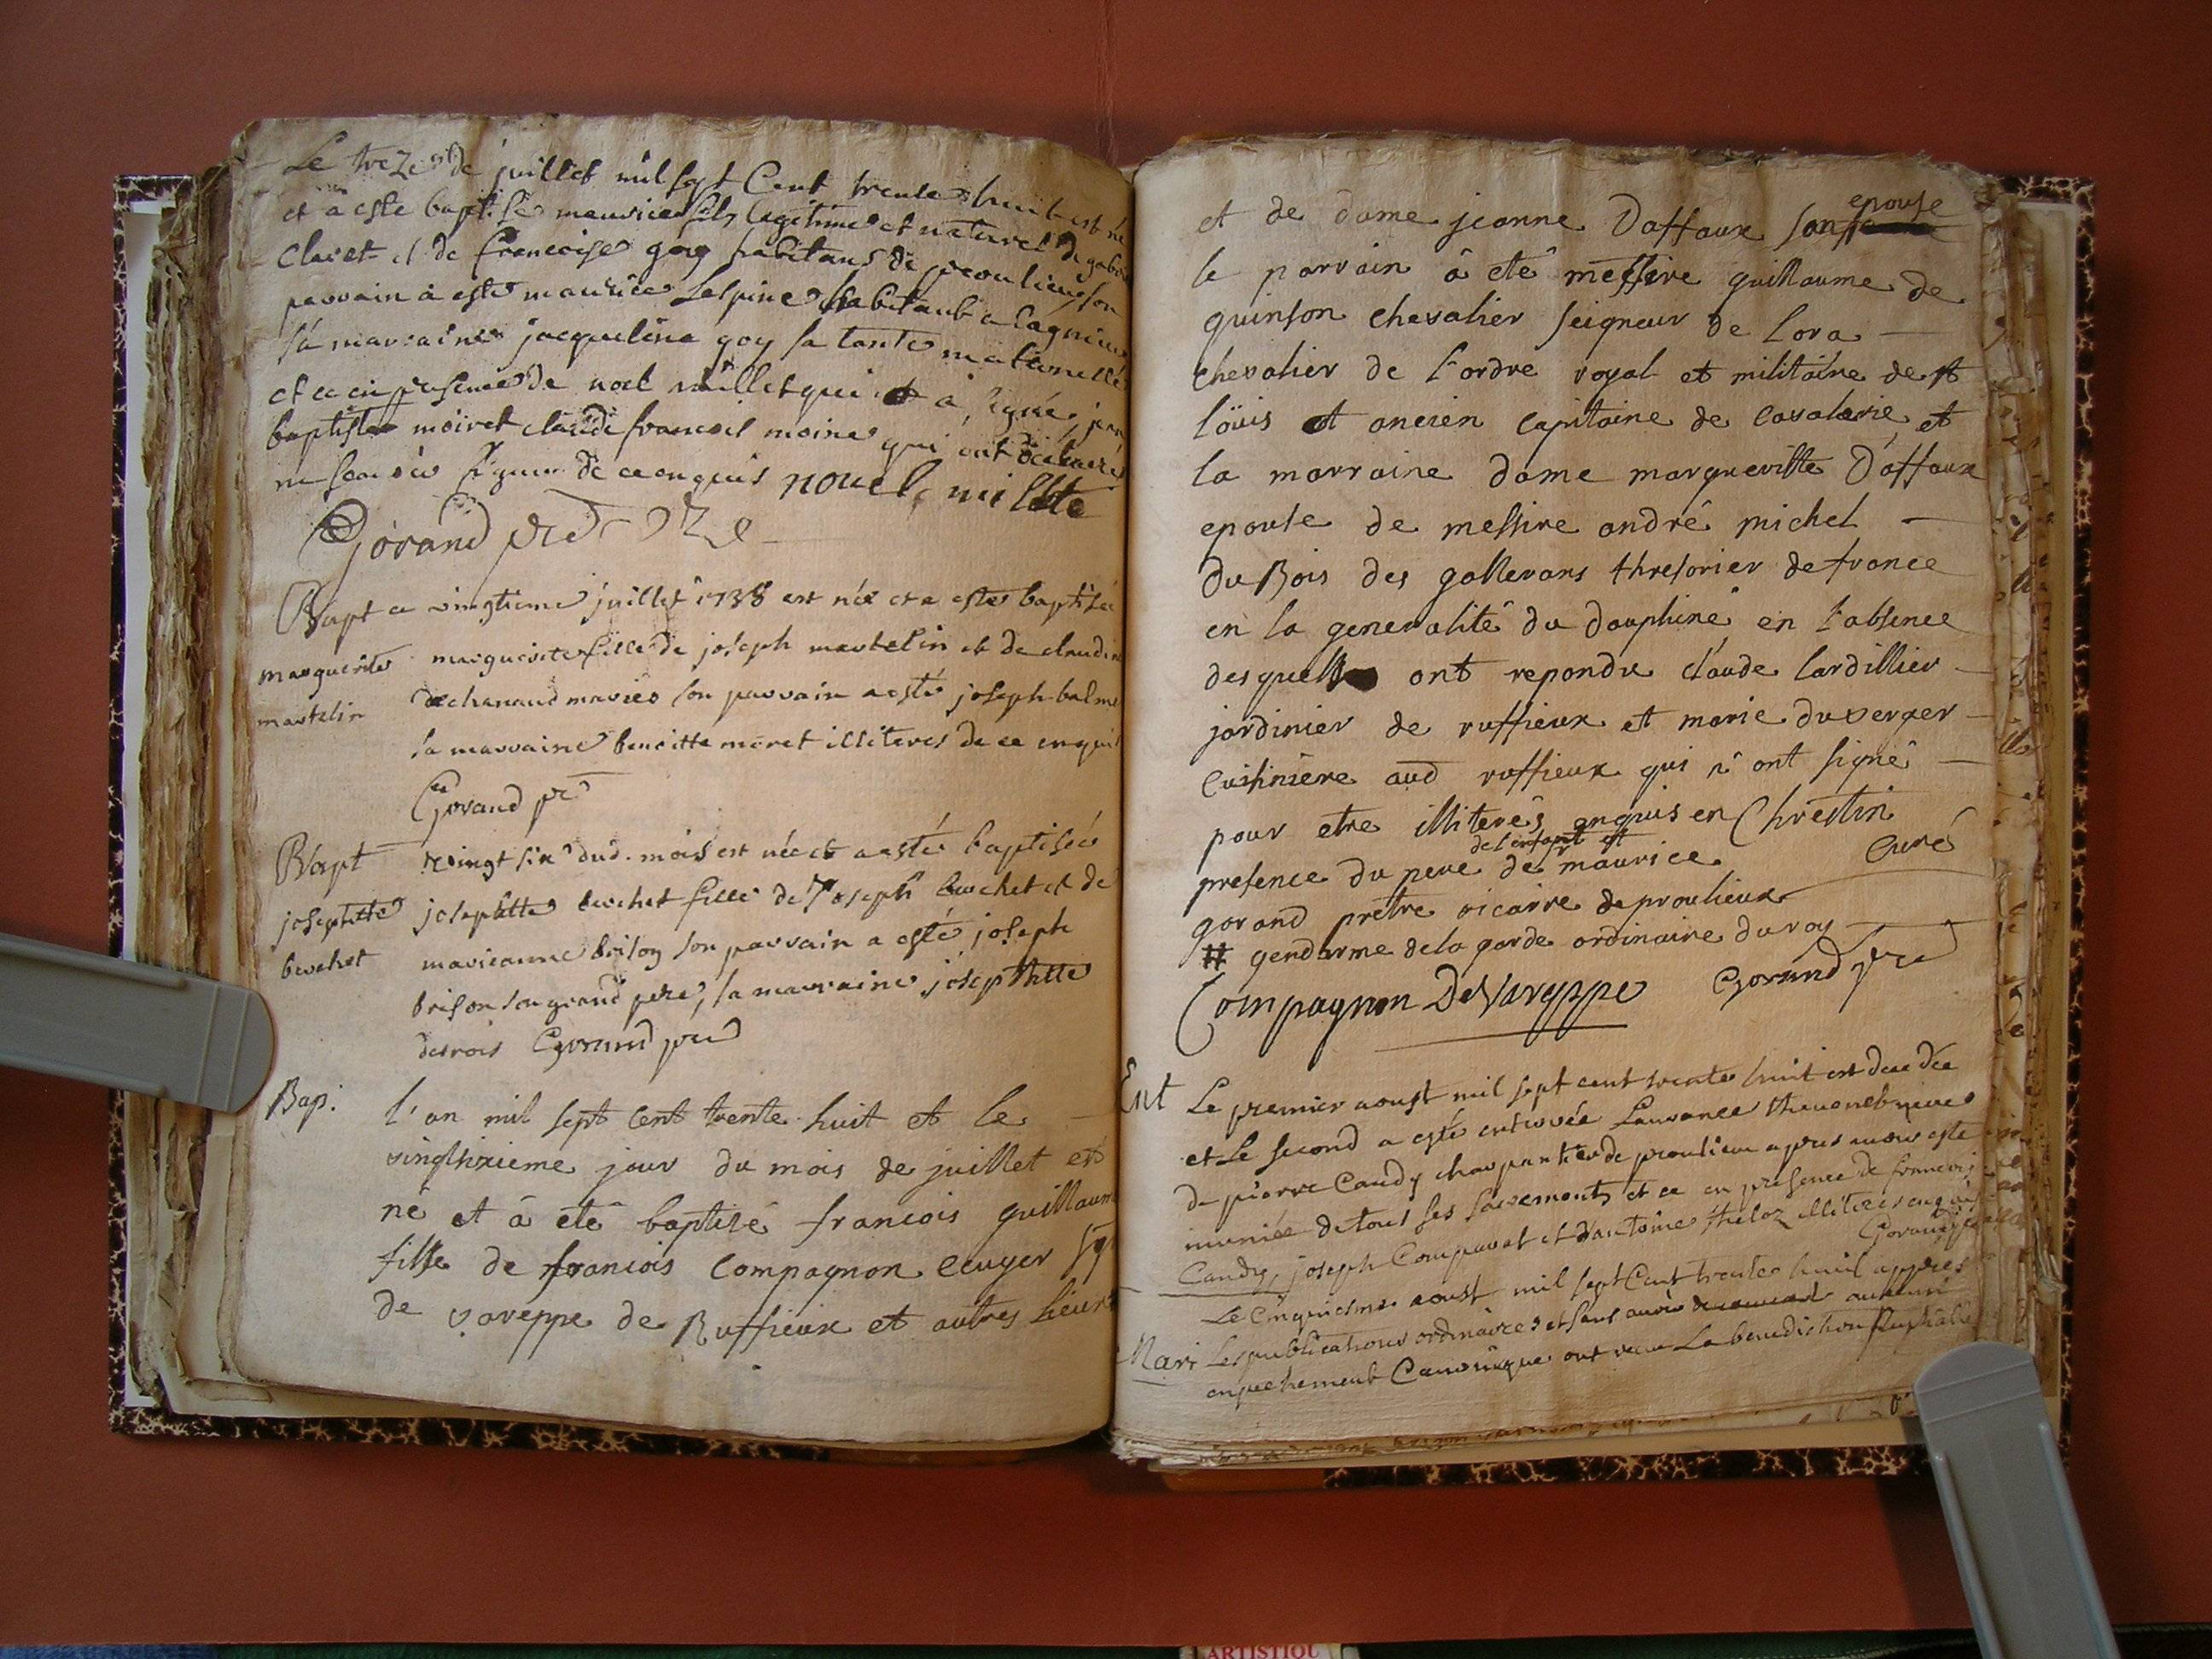 Le treze de juillet mil sept Cent trente huit est né
et a esté baptisé maurice fils legitime et naturel de
Claret et de francoise goy habitans de proulieu son
parrain a esté maurice Lespine habitant a lagnieu
sa marraine jacqueline goy sa tante maternelle
et ce en presence de noel millet qui a signé, jean
baptiste moiret claude francois moine qui ont declaré
ne scavoir signer de ce enquis nouel milete
Gorand pre
Bapt ce vingtieme juillet 1738 est née et a esté baptisée
marguerite marguerite fille de joseph martelin et de claudine
martelin dechanaud mariés son parrain a esté joseph balme
la marraine benoitte moret illiteres de ce enquis
Gorand pre
Bapt le vingt six dud. mois est née et a esté baptisée
josephtte josephtte berchet fille de Joseph berchet et de
berchet marieanne brison son parrain a esté joseph
brison son grand pere, sa marraine josephtte
derois Gorand pre
Bap. l'an mil sept cent trente huit et le
vingthixieme jour du mois de juillet est
né et à eté baptisé francois guillaume
fille de francois compagnon ecuyer sgr
de vareppe de Ruffieux et autres lieux
et de dame jeanne Daffaux son epouse
le parrain à eté messire guillaume de
quinson chevalier seigneur de Lora
chevalier de l'ordre royal et militaire de st
loüis et ancien capitaine de cavalerie et
la marraine dame margueritte D'affaux
epouse de messire andré michel
du Bois des gallerans thresorier de france
en la generalité du dauphiné en l'absence
desquells ont repondu claude lardillier
jardinier de ruffieux et marie duverger
cuisiniere aud ruffieux qui n'ont signé
pour etre illiterés enquis en Chrestin
de l'enfant et
presence du pere de mr maurice curé
gorand prêtre vicaire de proulieux
# gendarme de la garde ordinaire du roy
Compagnon De Vareppe Gorand pre
Ent Le premier aoust mil sept cent trente huit est decedée
et Le second a esté enterrée Laurance thevenet veuve
de pierre Candy charpantier de proulieu apres avoir esté
munie de tous ses sacrements et ce en presence de francois
Candy, joseph Comparat et d'antoine theloz illiteres enquis
Gorand pre
Le Cinquiesme aoust mil sept Cent trente huit appres
Mari Les publications ordinaires et sans avoir decouvert aucun
enpechement Canonique ont receu La benediction Nuptialle
ARTISTIQU